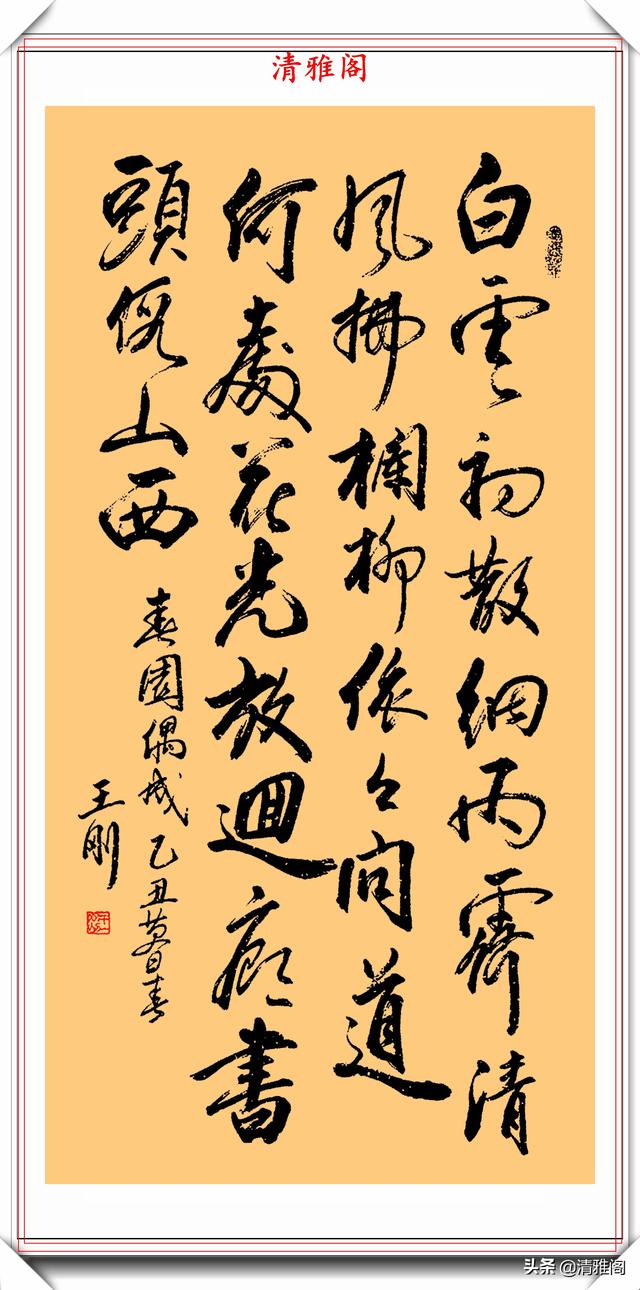 清雅阁
白雲初散細雨霽清
風拂欄柳依々問道
何處花光放迴廊盡
頭假山西
春園偶成 乙丑暮春
王剛
头条 @清雅阁